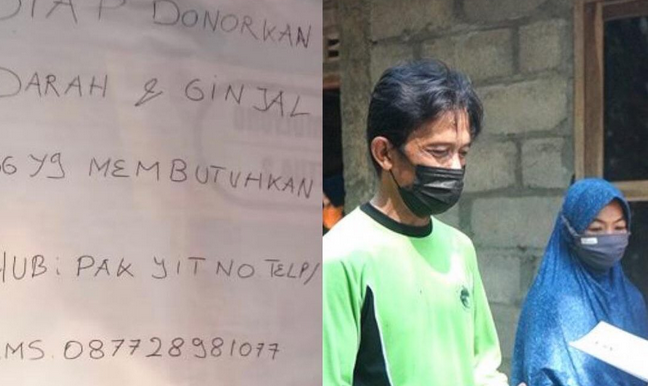 SIAP DONORKAN
DARAH & GINJAL
BG YG MEMBUTUHKAN
HUBI PAK YITNO TELP/
SMS. 087728981077